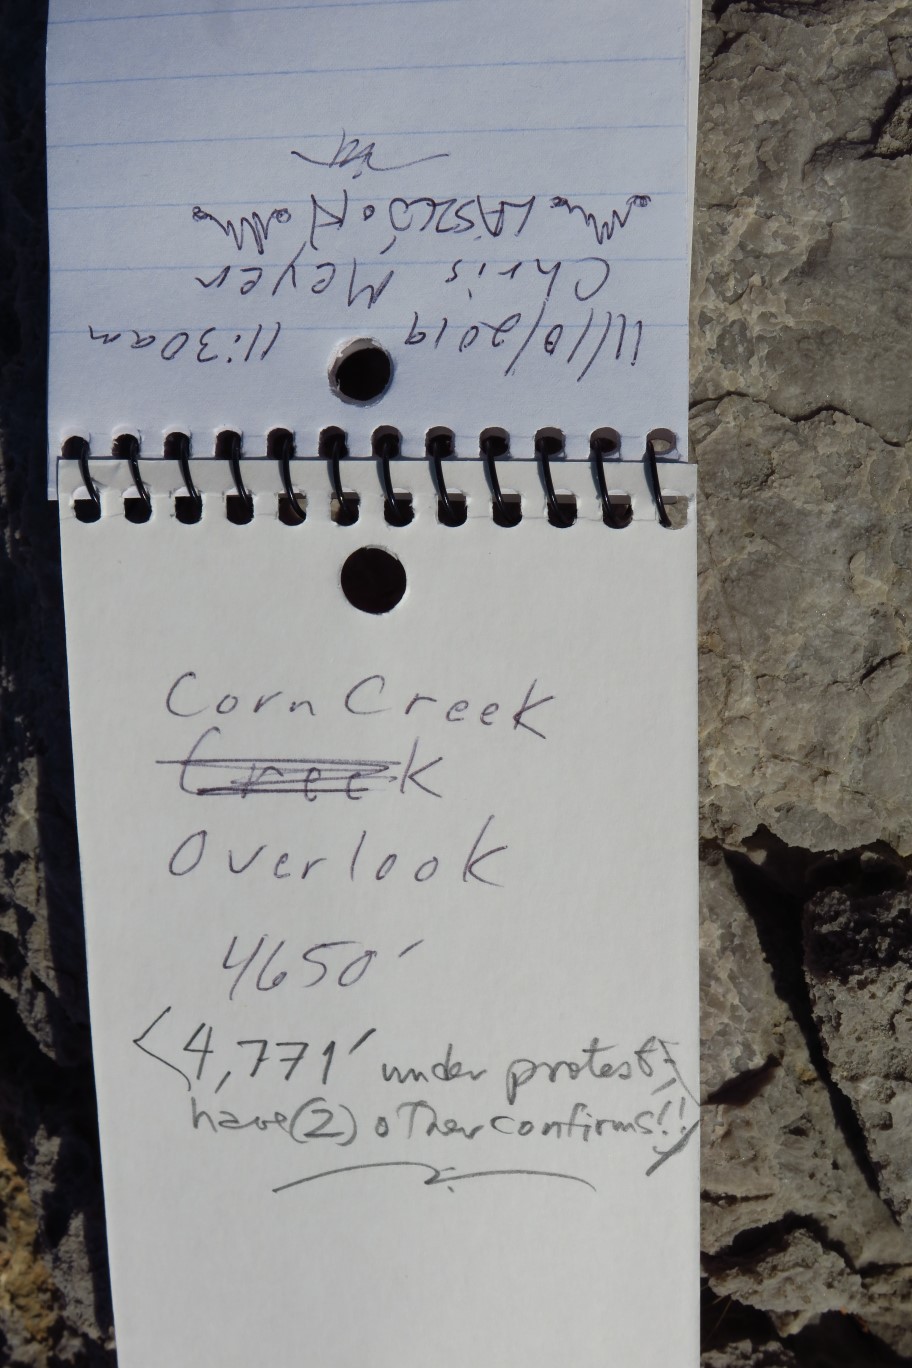 11/10/2019 11:30am
Chris Meyer
LÁSZLÓ
Corn Creek
Creek
Overlook
4650'
<4,771' under protest;
have (2) other confirms!!>